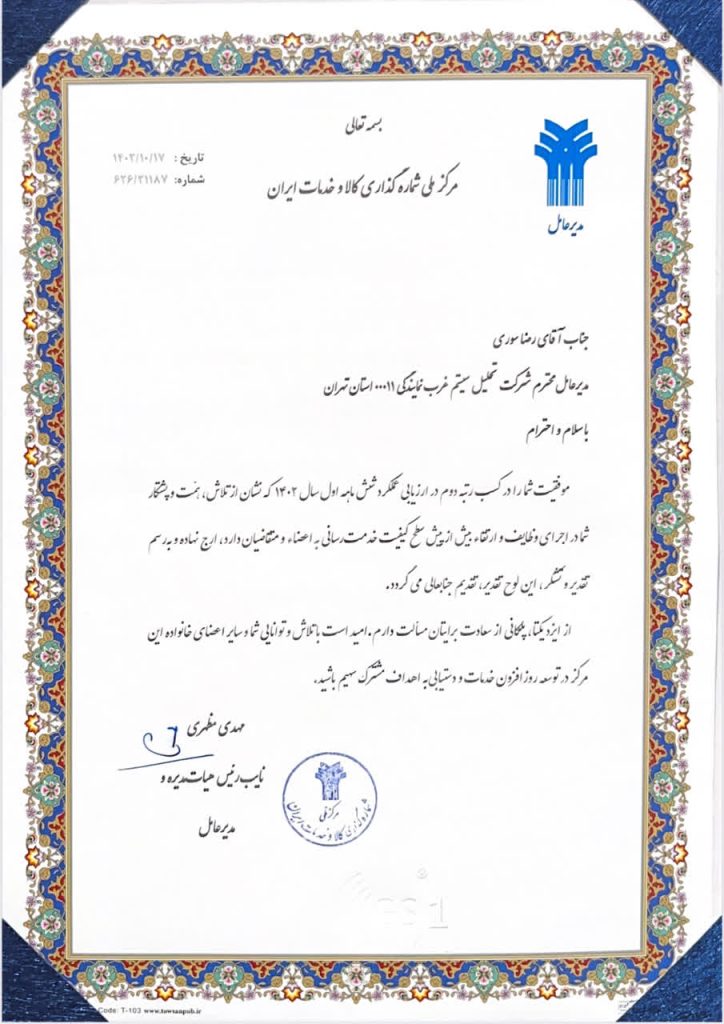 بسمه تعالی
مرکز ملی شماره گذاری کالا و خدمات ایران
تاریخ : ۱۴۰۲/۱۰/۱۷
شماره: ۶۲۶/۳۱۱۸۷
مدیرعامل
جناب آقای رضا سوری
مدیرعامل محترم شرکت تحلیل سیستم غرب نمایندگی ۰۰۰۱۱ استان تهران
با سلام و احترام
موفقیت شما را در کسب رتبه دوم در ارزیابی عملکرد شش ماهه اول سال ۱۴۰۲ که نشان از تلاش، همت و پشتکار
شما در اجرای وظایف و ارتقاء بیش از پیش سطح کیفیت خدمت رسانی به اعضاء و متقاضیان دارد، ارج نهاده و به رسم
تقدیر و تشکر، این لوح تقدیر، تقدیم جنابعالی می گردد.
از ایزد یکتا، پلکانی از سعادت برایتان مسألت دارم. امید است با تلاش و توانایی شما و سایر اعضای خانواده این
مرکز در توسعه روز افزون خدمات و دستیابی به اهداف مشترک سهیم باشید.
مهدی مظهری
نایب رئیس هیات مدیره و
مدیرعامل
مرکز ملی
شماره گذاری کالا و خدمات ایران
GS1
Code: T-103 www.tawsanpub.ir